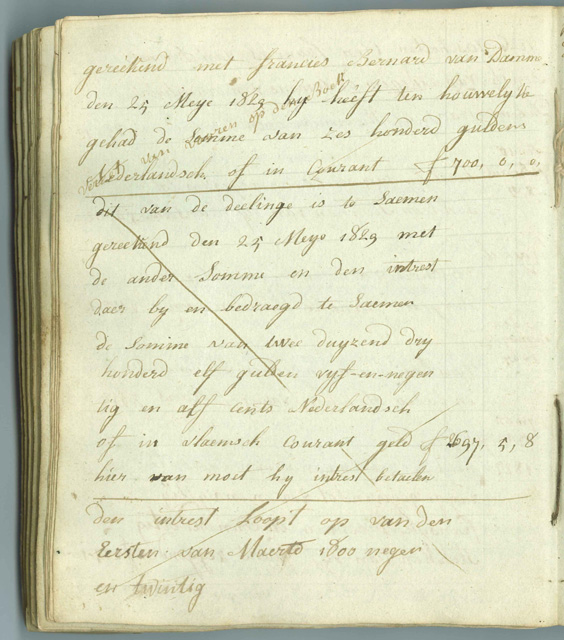 gereekend met francies Bernard van Damme
den 25 Meye 1829 hy heeft ten houwelyke
gehad de Somme van zes honderd guldens
Nederlandsch of in Courant f 700, 0, 0,
dit van de deelinge is te Saemen
gereekend den 25 Meye 1829 met
de ander Somme en den intrest
daer by en bedraegd te Saemen
de Somme van twee duyzend dry
honderd elf gulden vyf-en-negen
tig en alf cents Nederlandsch
of in vlaemsch Courant geld f 2697, 5, 8
hier van moet hy intrest betaelen
den intrest Loopt op van den
Eersten van Maerte 1800 negen
en twintig